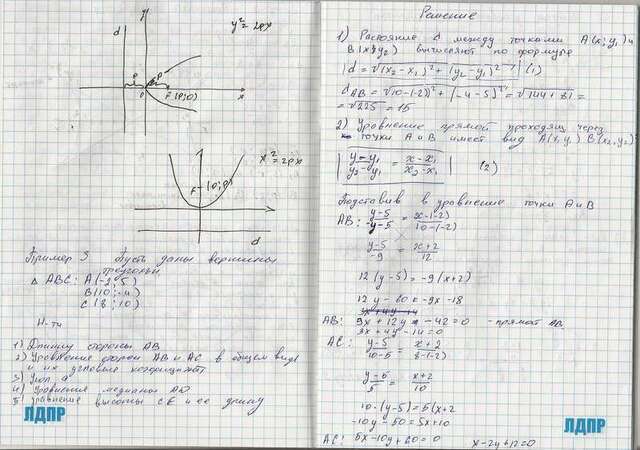 y
d
y² = 2px
p
F (p; 0)
x
x² = 2px
F (0; p)
d
Пример 3 Пусть даны вершины
треугольн
Δ ABC: A(-2; 5)
B(10; -4)
C(8; 10)
Н-ти
1) Длину стороны AB
2) Уравнение сторон AB и AC в общем виде
и их угловые
3) Угол
4) Уравнения медианы AD
5 уравнение высоты CE и ее длину
ЛДПР
Решение
1) Растояние d между точками A(x; y₁) и
B(x; y₂) вычисляют по формуле
d = √(x₂ - x₁)² + (y₂ - y₁)² (1)
d AB = √(10-(-2))² + (-4-5)² = √144 + 81 =
= √225 = 15
2) Уравнение прямой проходящ через
точки A и B имеет вид A(x; y) B(x₂, y₂)
y - y₁ / y₂ - y₁ = x - x₁ / x₂ - x₁ (2)
Подставив в уравнение точки A и B
AB: y-5 / -4-5 = x-(-2) / 10-(-2)
y-5 / -9 = x+2 / 12
12(y-5) = -9(x+2)
12y - 60 = -9x - 18
AB: 9x + 12y - 42 = 0 - прямой AB
3x + 4y - 14 = 0
AC: y-5 / 10-5 = x+2 / 8-(-2)
y-5 / 5 = x+2 / 10
10·(y-5) = 5(x+2
10y - 50 = 5x + 10
AC: 5x - 10y + 60 = 0 x - 2y + 12 = 0
ЛДПР